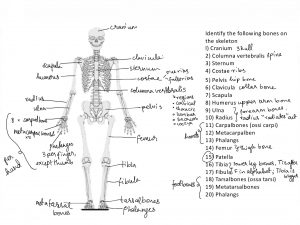 cranium
clavicula
scapula
sternum
humerus
costae
columna vertebralis
radius
ulna
pelvis
8 = carpalbone
metacarpalbones
phalanges
3 per finger,
except thumb
for
hand
femur
tibia
fibula
metatarsal
bones
tarsalbones
phalanges
Identify the following bones on
the skeleton
1) Cranium skull
2) Columna vertebrals spine
3) Sternum
4) Costae ribs
5) Pelvis hip bone
6) Clavicula collar bone
7) Scapula
8) Humerus upper arm bone
9) Ulna forearm bones
10) Radius "radiates" out
11) Carpalbones (ossi carpi)
12) Metacarpalben
13) Phalangs
14) Femur thigh bone
15) Patella
16) Tibia lower leg bones,
17) Fibula F in alphabet,
18) Tarsalbones (ossa tarsi)
19) Metatarsalbones
20) Phalangs
hand
footbones